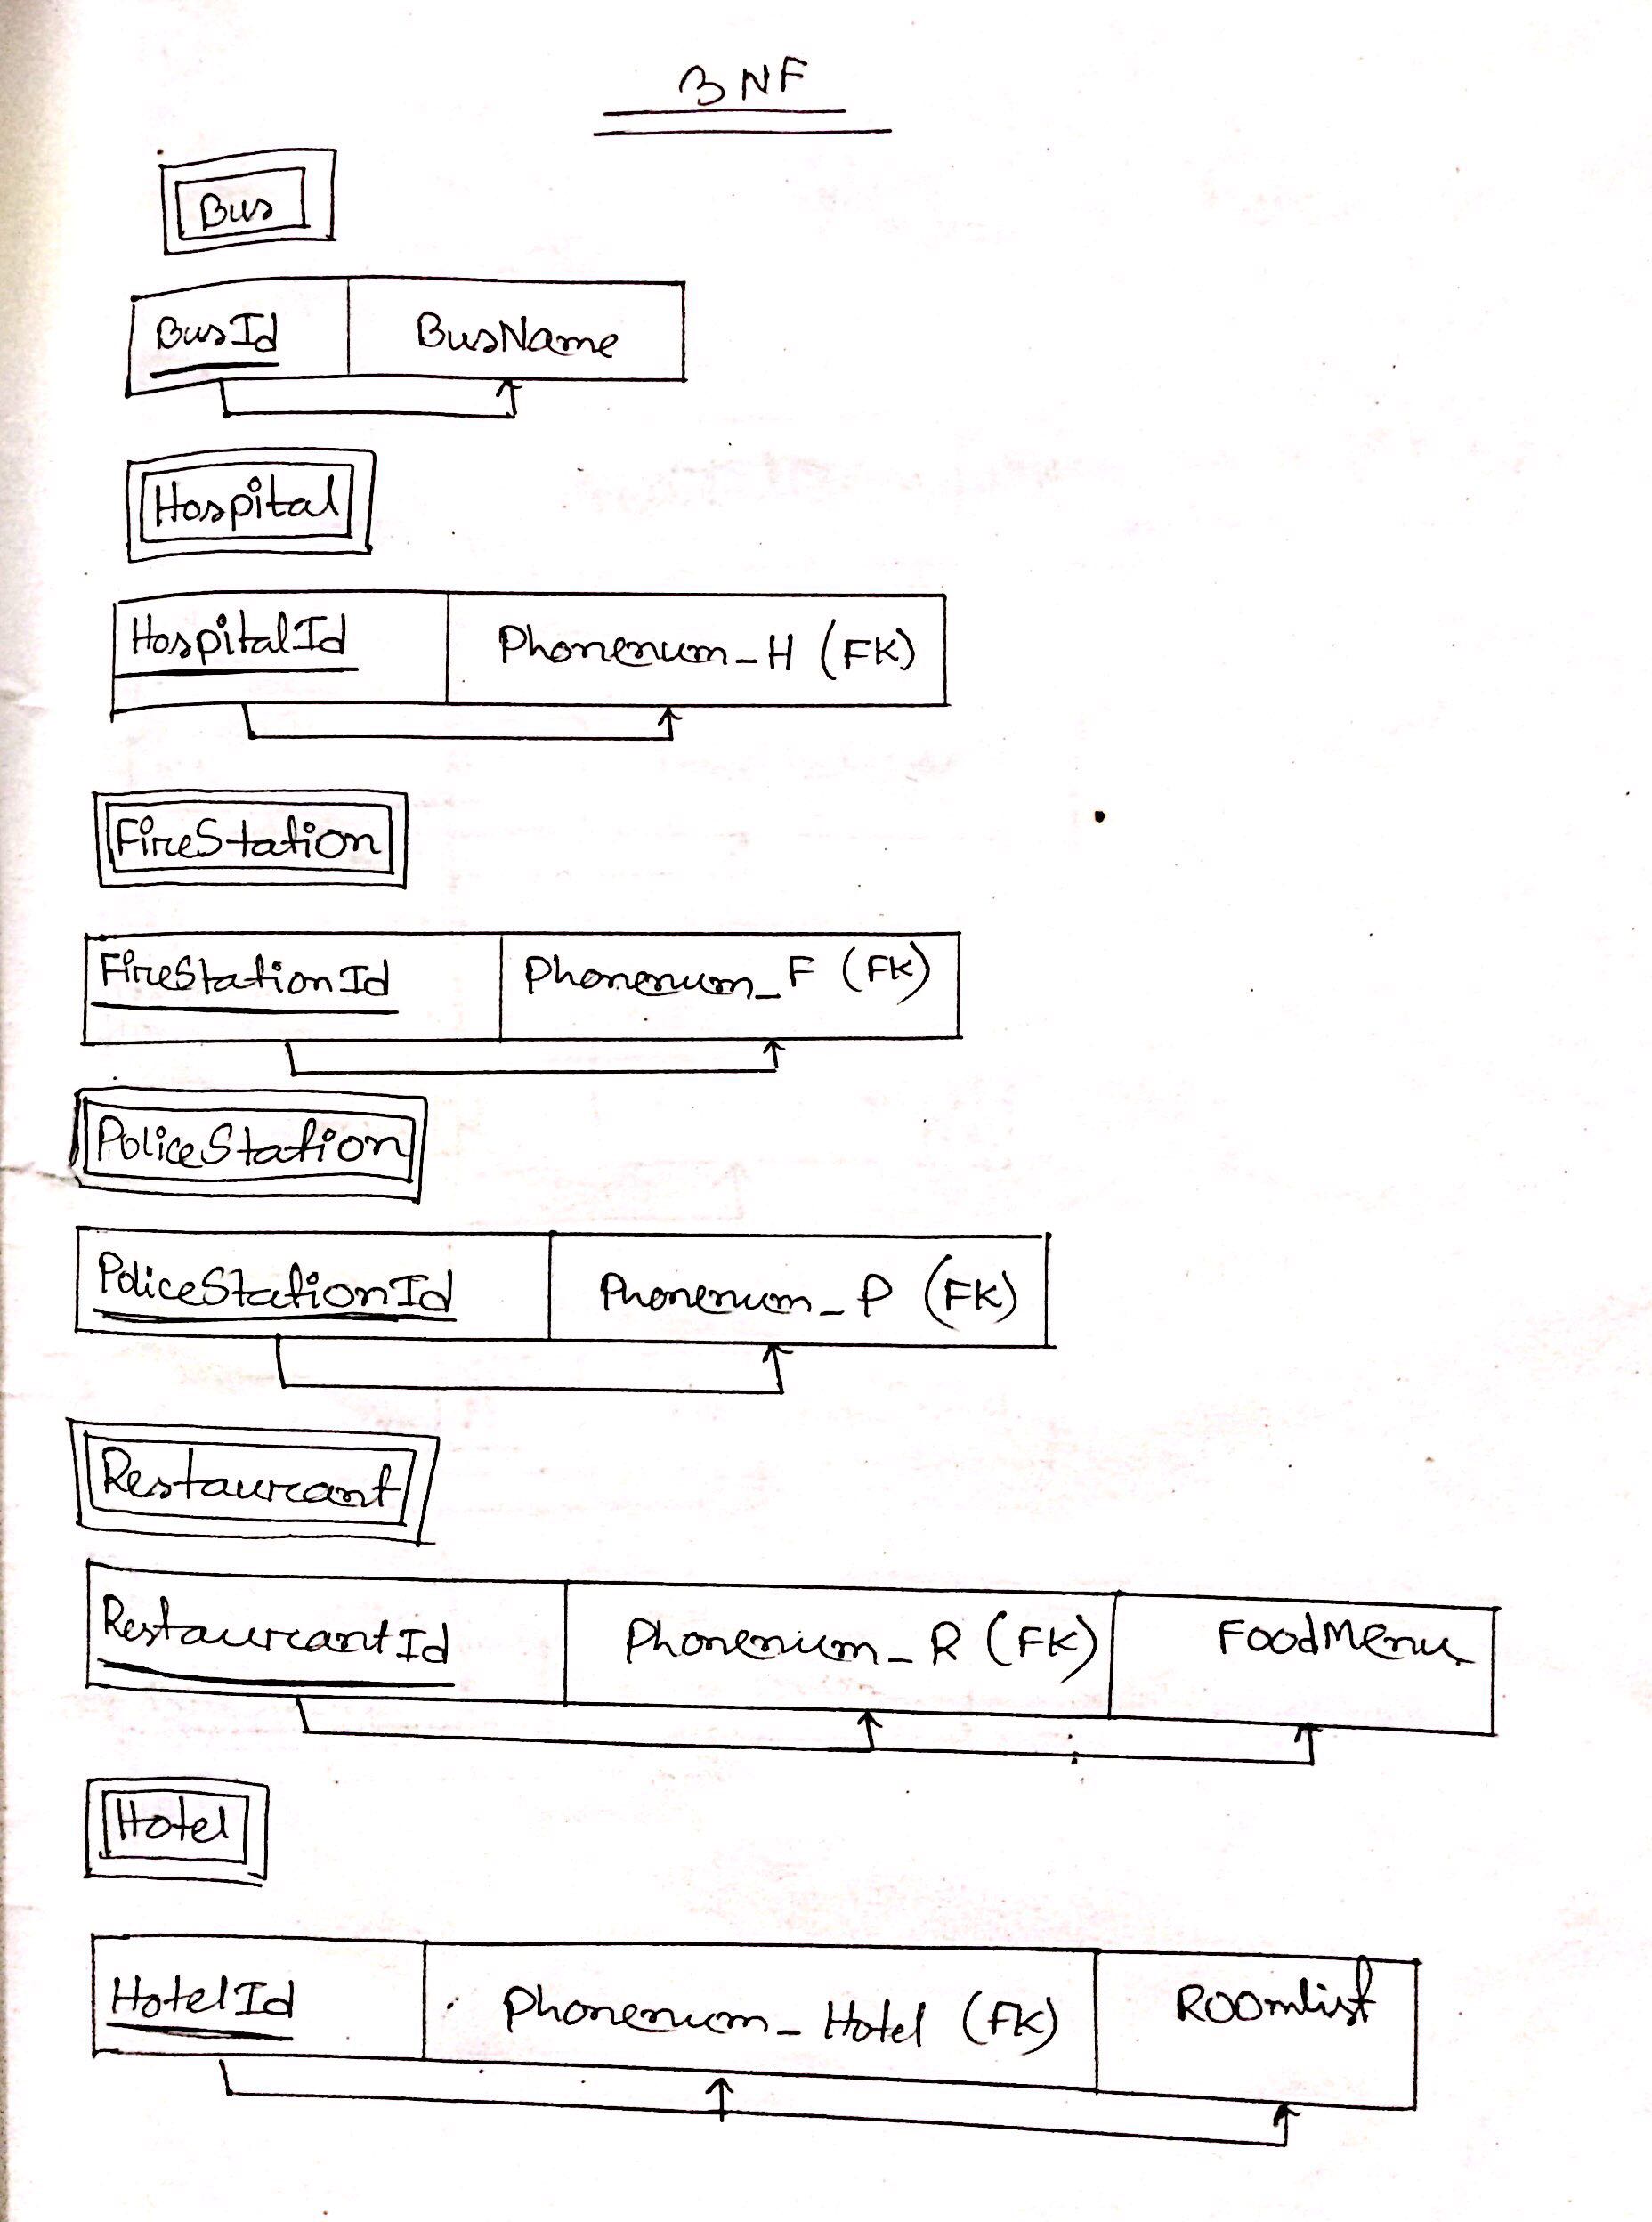 3NF
Bus
BusId BusName
Hospital
HospitalId Phonenum_H (FK)
FireStation
FireStationId Phonenum_F (FK)
PoliceStation
PoliceStationId Phonenum_P (FK)
Restaurant
RestaurantId Phonenum_R (FK) FoodMenu
Hotel
HotelId Phonenum_Hotel (FK) Roomlist